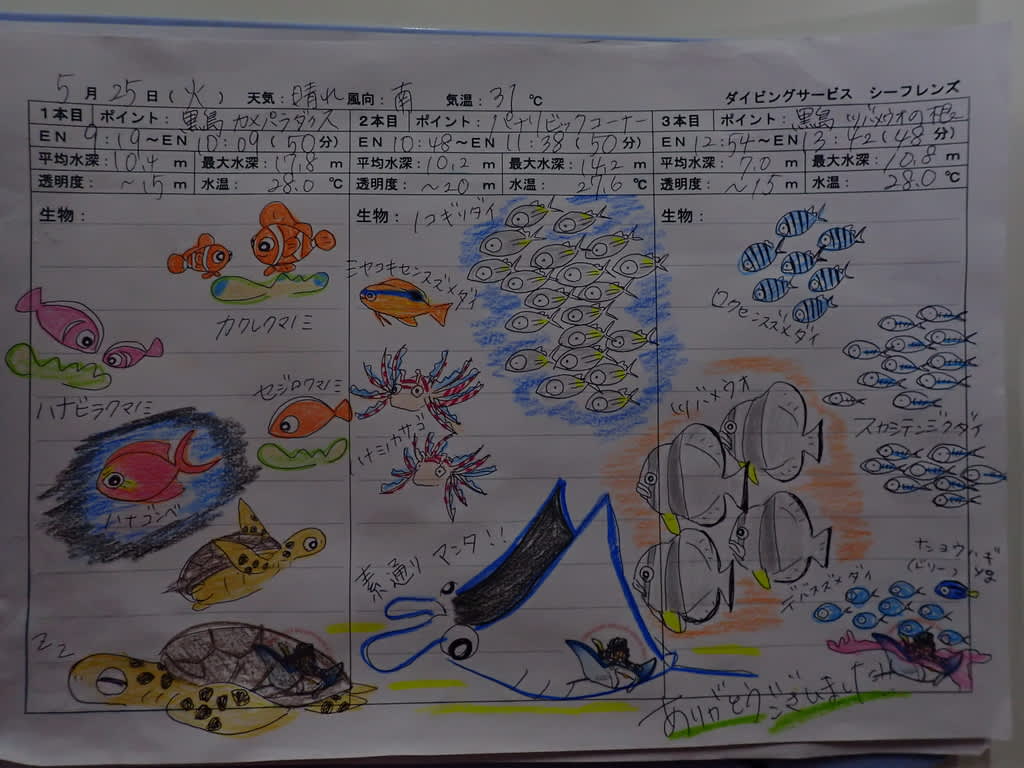 5月25日(火) 天気:晴れ 風向:南 気温:31℃ ダイビングサービス シーフレンズ
1本目 ポイント:黒島 カメパラダイス 2本目 ポイント:パナリビックコーナー 3本目 ポイント:黒島 ツバメウオの根
EN 9:19~EN 10:09(50分) EN 10:48~EN 11:38(50分) EN 12:54~EN 13:42(48分)
平均水深:10.4 m 最大水深:17.8 m 平均水深:10.2 m 最大水深:14.2 m 平均水深:7.0 m 最大水深:10.8 m
透明度:~15 m 水温:28.0 ℃ 透明度:~20 m 水温:27.6 ℃ 透明度:~15 m 水温:28.0 ℃
生物:
カクレクマノミ
ハナビラクマノミ
セジロクマノミ
ハナゴンベ
ZZ
生物:ノコギリダイ
ミヤコキセンスズメダイ
ハナミノカサゴ
素通りマンタ!!
生物:
ロクセンスズメダイ
スカシテンジクダイ
ツバメウオ
ナンヨウハギ
(ドリー) yg
デバスズメダイ
ありがとうございました